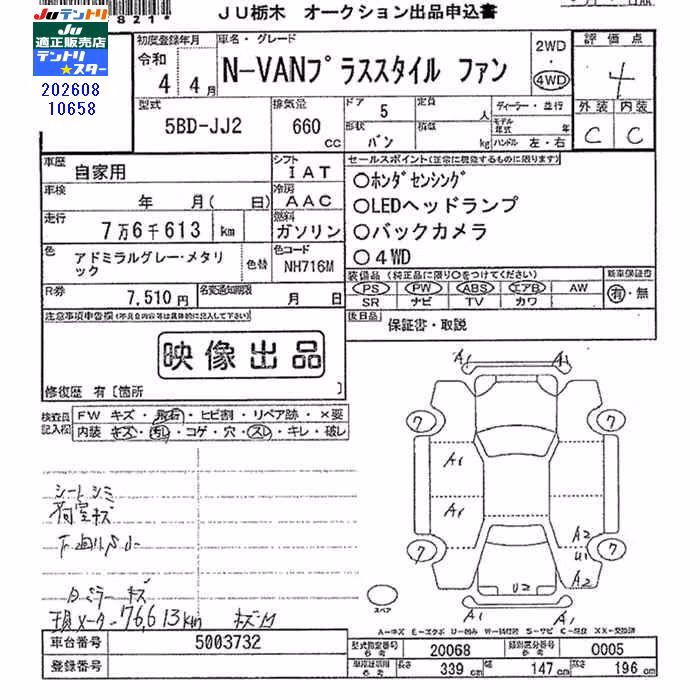 JUテントリ
JU
適正販売店
テントリ
★スター
202608
10658
821*
JU栃木 オークション出品申込書
初度登録年月
令和
4年4月
車名・グレード
N-VANプラススタイル ファン
2WD
・
4WD
評価点
4
外装 内装
C C
型式
5BD-JJ2
排気量
660
cc
ドア 5
形状 バン
定員 人
積載 kg
ディーラー・並行
モデル年式 年
ハンドル 左・右
車歴
自家用
シフト
IAT
車検
年 月( 日)
冷房
AAC
走行
7万6千613 km
燃料
ガソリン
色
アドミラルグレー・メタリック
色替
色コード
NH716M
R券
7,510円
名変通知期限
月 日
セールスポイント(正常に機能するものに限ります)
○ホンダセンシング
○LEDヘッドランプ
○バックカメラ
○4WD
装備品(純正品に限り○をつけてください)
PS PW ABS エアB AW
SR ナビ TV カワ
新車保証書
有・無
後日品
保証書・取説
注意事項申告欄(不具合内容等は具体的に記入して下さい)
映像出品
修復歴 有〔箇所 〕
検査員記入欄
FW キズ・飛石・ヒビ割・リペア跡・×要
内装 キズ・汚れ・コゲ・穴・スレ・キレ・破レ
シートシミ
荷室キズ
下廻りサビ
キズ
現メーター76,613km
A1 A1
7 7
A1
A1
A2
U1
7 7
A2
U2
A1 A1
スペア
A-キズ E-エクボ U-凹み W-補修跡 S-サビ C-腐食 XX-交換済
車台番号
5003732
登録番号
型式指定番号
参考
20068
類別区分番号
参考
0005
車庫証明用
参考
長さ 339 cm
幅 147 cm
高さ 196 cm